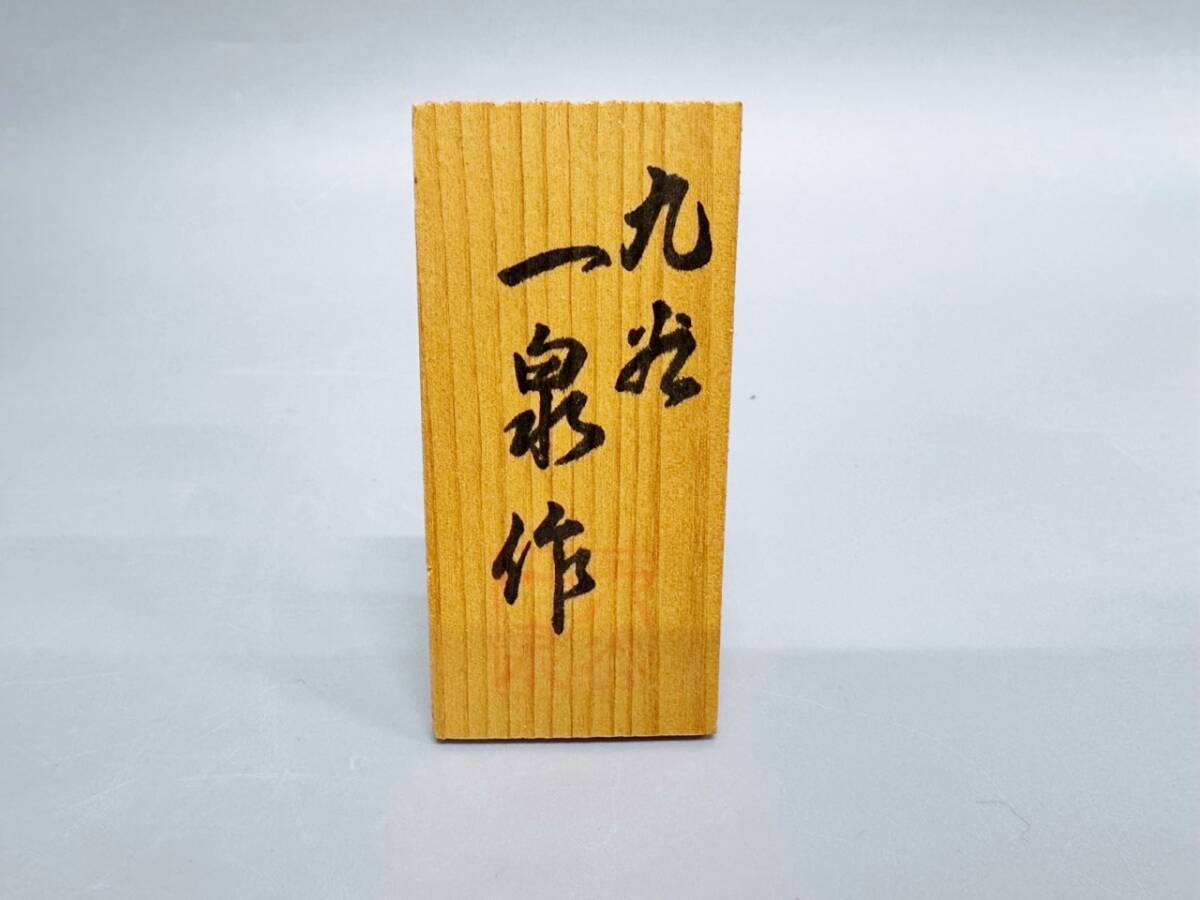 九谷
一泉作